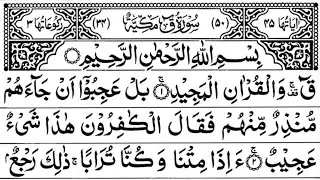 اٰیَاتُهَا ۴۵ (۵۰) سُوْرَةُ قٓ مَكِّيَّةٌ (۳۴) رُكُوْعَاتُهَا ۳
بِسْمِ اللّٰهِ الرَّحْمٰنِ الرَّحِيْمِ
قٓ ۚ وَالْقُرْاٰنِ الْمَجِيْدِ ۝۱ بَلْ عَجِبُوْۤا اَنْ جَآءَهُمْ
مُّنْذِرٌ مِّنْهُمْ فَقَالَ الْكٰفِرُوْنَ هٰذَا شَىْءٌ
عَجِيْبٌ ۝۲ ءَ اِذَا مِتْنَا وَكُنَّا تُرَابًا ۚ ذٰلِكَ رَجْعٌۢ